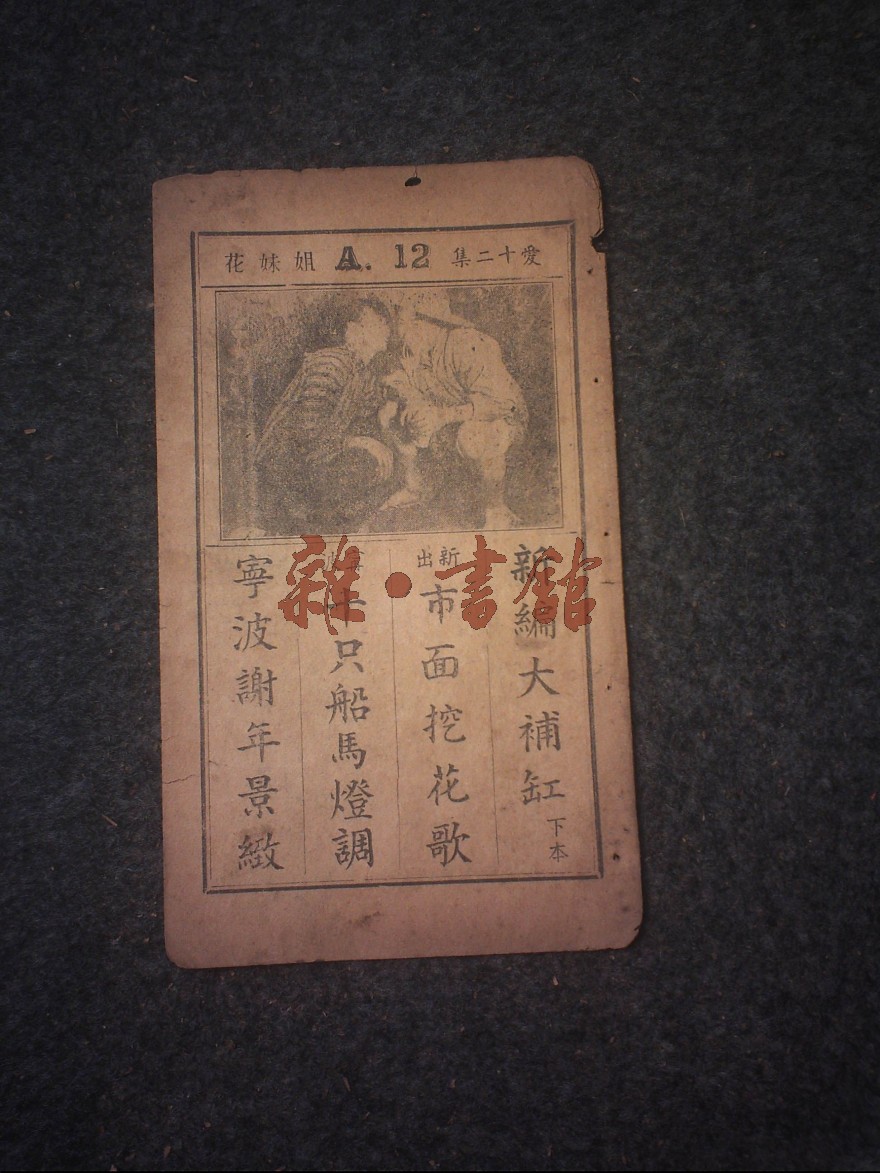 愛十二集 A. 12 姐妹花
新編大補缸 下本
新出 市面挖花歌
十只船馬燈調
寧波謝年景緻
雜·書館